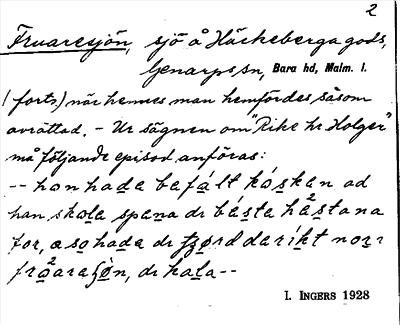 2
Fruaresjön, sjö å Häckeberga gods,
Genarps sn, Bara hd, Malm. l.
(forts.) när hennes man hemfördes såsom
avrättad. – Ur sägnen om "Rike hr Holger"
må följande episod anföras:
-- hon hada befált kósken ad
han skola spena dr bésta hästana
for, o so hada dr
-- dr hala --
I. INGERS 1928